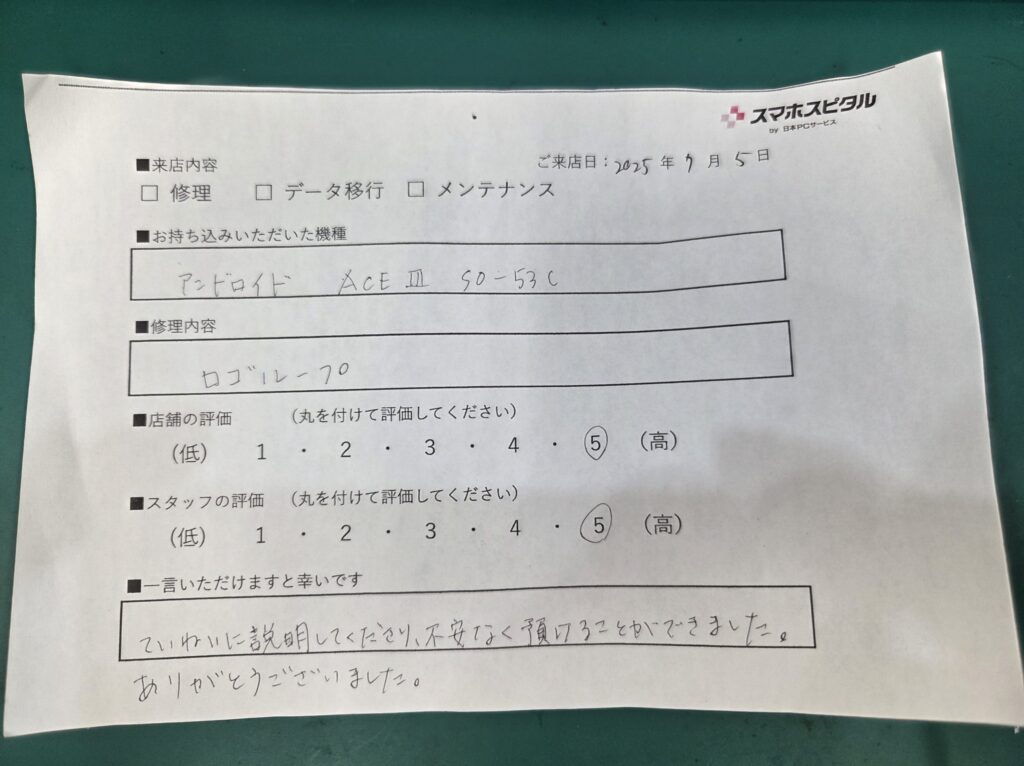 スマホスピタル
by 日本PCサービス
■来店内容
ご来店日：2025 年 7 月 5 日
□ 修理 □ データ移行 □ メンテナンス
■お持ち込みいただいた機種
アンドロイド ACE III SO-53C
■修理内容
ロゴループ
■店舗の評価 （丸を付けて評価してください）
（低） 1 ・ 2 ・ 3 ・ 4 ・ 5 （高）
■スタッフの評価 （丸を付けて評価してください）
（低） 1 ・ 2 ・ 3 ・ 4 ・ 5 （高）
■一言いただけますと幸いです
ていねいに説明してくださり、不安なく預けることができました。
ありがとうございました。